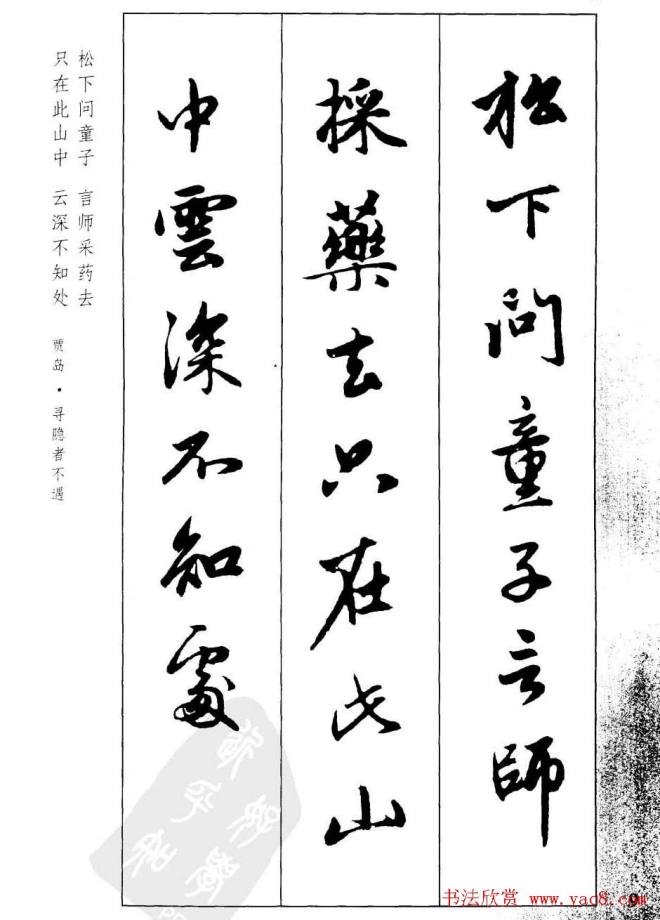 松下問童子言師
採藥去只在此山
中雲深不知處
松下问童子 言师采药去
只在此山中 云深不知处
贾岛·寻隐者不遇
9
书法欣赏 www.yac8.com